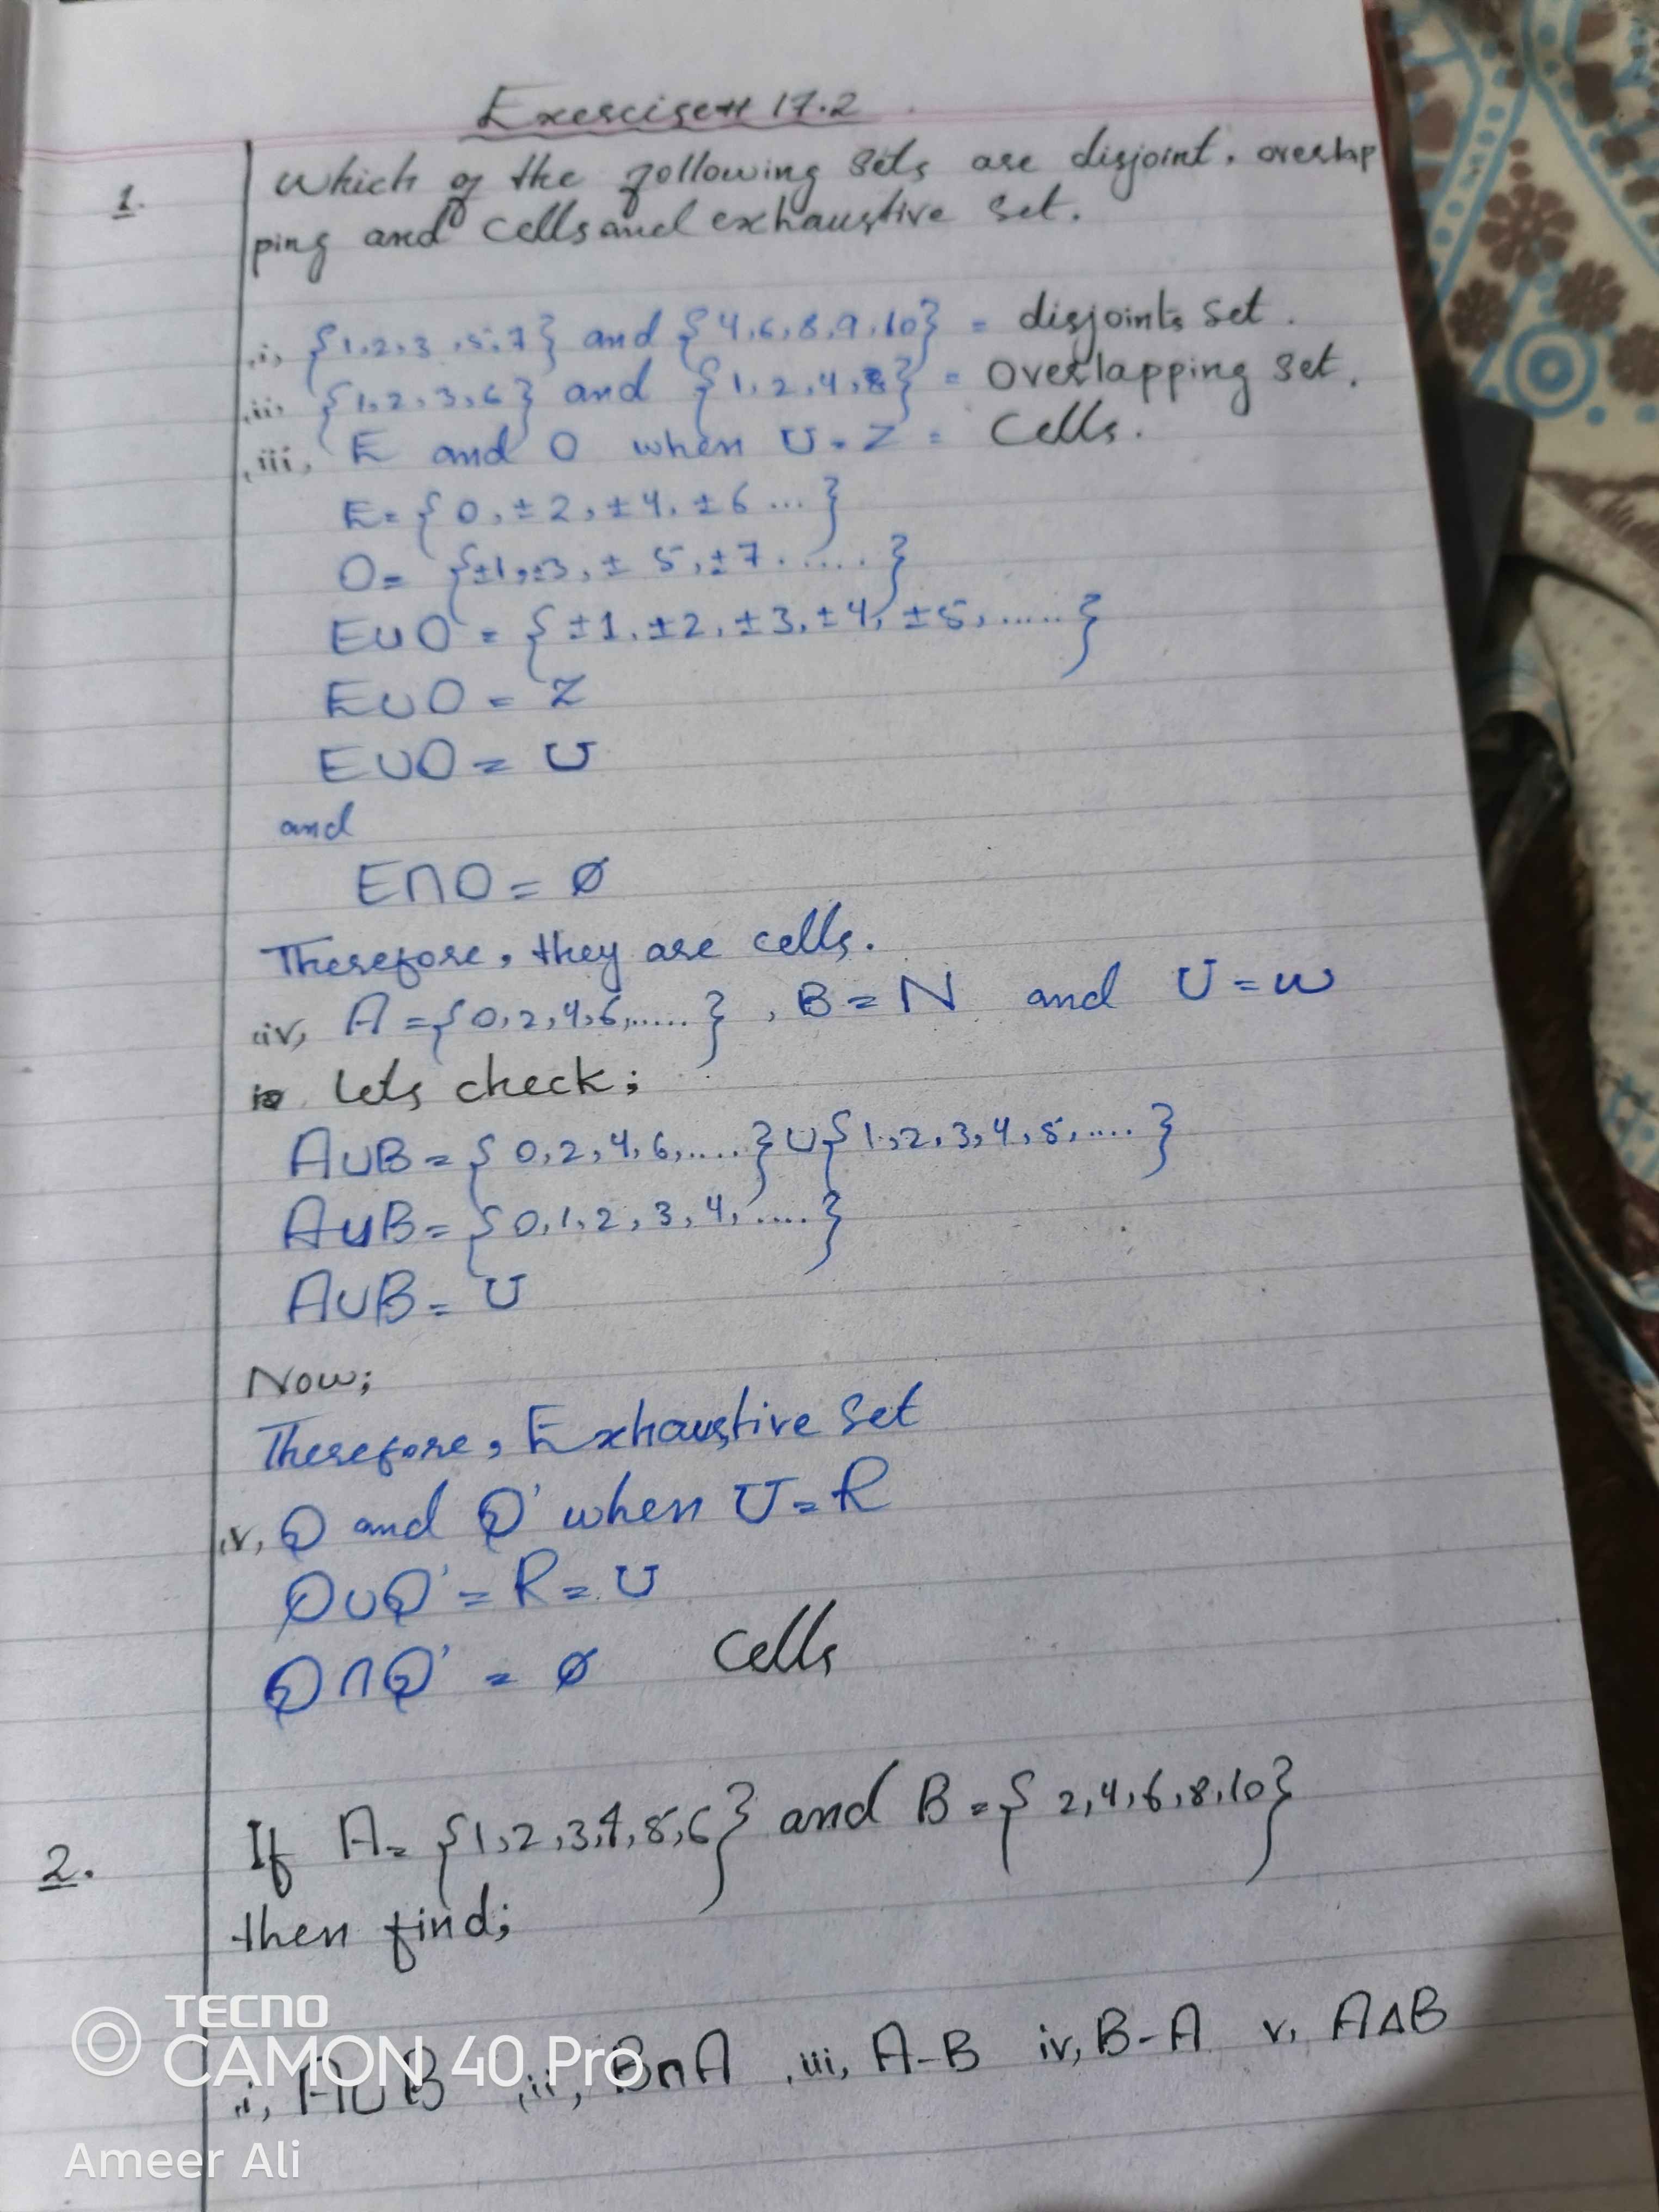 Exercise# 17.2
1. Which of the following sets are disjoint, overlap
ping and cells and exhaustive set.
,i, {1,2,3,5,7} and {4,6,8,9,10} = disjoints set.
,ii, {1,2,3,6} and {1,2,4,8} = Overlapping set.
,iii, E and O when U=Z = Cells.
E={0,±2,±4,±6...}
O= {±1,±3,± 5,±7......}
E∪O = {±1,±2,±3,±4,±5,.....}
E∪O = Z
E∪O = U
and
E∩O = ∅
Therefore, they are cells.
,iv, A={0,2,4,6,.....}, B=N and U=W
lets check;
A∪B={0,2,4,6,....}∪{1,2,3,4,5,....}
A∪B={0,1,2,3,4,....}
A∪B= U
Now;
Therefore, Exhaustive Set
,v, Q and Q' when U=R
Q∪Q' = R = U
Q∩Q' = ∅ Cells
2. If A= {1,2,3,4,5,6} and B={2,4,6,8,10}
then find;
,i, A∪B ,ii, B∩A ,iii, A-B iv, B-A v, A∆B
TECNO
CAMON 40 Pro
Ameer Ali